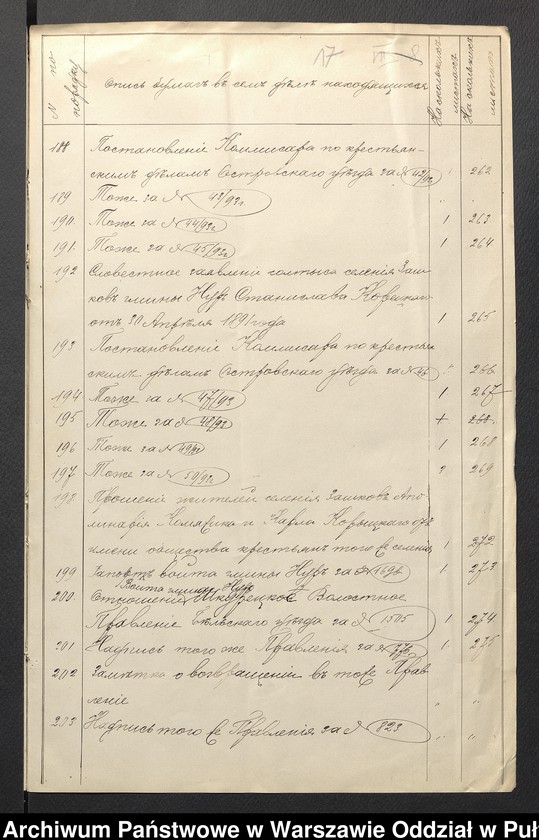 17
N по порядку
Опись бумагъ въ семъ дѣлѣ находящихся
На сколькихъ листахъ
На сколькихъ
188 Постановленіе Коммисара по крестьян-
скимъ дѣламъ Островскаго уѣзда за № 262
189 Тоже за № 43/92г
190 Тоже за № 44/92г 1 263
191 Тоже за № 45/92г 1 264
192 Словестное заявленіе солтыса селенія Заш-
ковъ гмины Нуръ Станислава
отъ 30 Апрѣля 1891 года 1 265
193 Постановленіе Коммисара по крестьян
скимъ дѣламъ Островскаго уѣзда за № 46 266
194 Тоже за № 47/93 1 267
195 Тоже за № 48/92 268
196 Тоже за № 49/92 1 268
197 Тоже за № 50/92г 269
198 Прошеніе жителей селенія Зашковъ Апо-
линарія Комарика и Карла отъ
имени общества крестьянъ того же селенія 1 272
199 Рапортъ войта гмины Нуръ за № 1696 1 273
Войта гмины Нуръ
200 Отношеніе Волостное
Правленіе Бѣльскаго уѣзда за № 1505 1 274
201 Надпись того же Правленія за № 776 1 275
202 Замѣтка о возвращеніи въ тоже Прав
леніе " "
203 Надпись того же Правленія за № 823 " "
Archiwum Państwowe w Warszawie Oddział w Puł